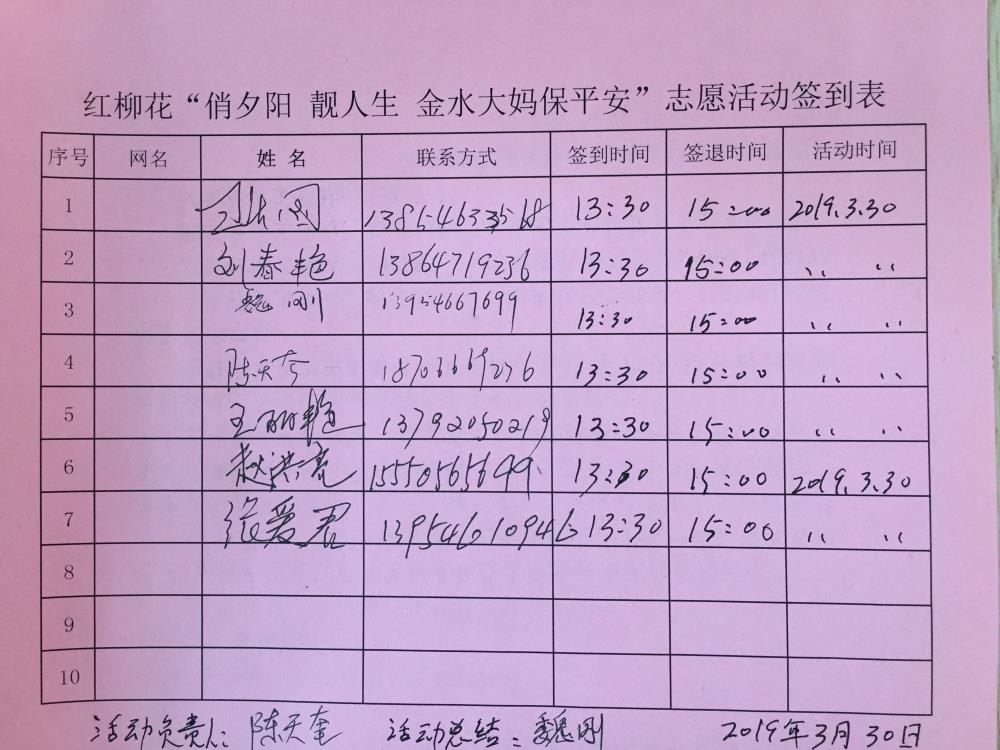 红柳花“俏夕阳 靓人生 金水大妈保平安”志愿活动签到表
序号 网名 姓名 联系方式 签到时间 签退时间 活动时间
1 13:30 15:00 2019.3.30
2 刘春艳 13864719236 13:30 15:00 〃 〃
3 魏刚 13954667699 13:30 15:00 〃 〃
4 陈天奎 13:30 15:00 〃 〃
5 王丽艳 13792050219 13:30 15:00 〃 〃
6 赵洪亮 15550565699 13:30 15:00 2019.3.30
7 张爱君 13954610946 13:30 15:00 〃 〃
8
9
10
活动负责人:陈天奎 活动总结:魏刚 2019年3月30日